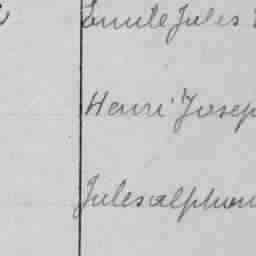 Emile Jules
Henri Josep
Jules alphon